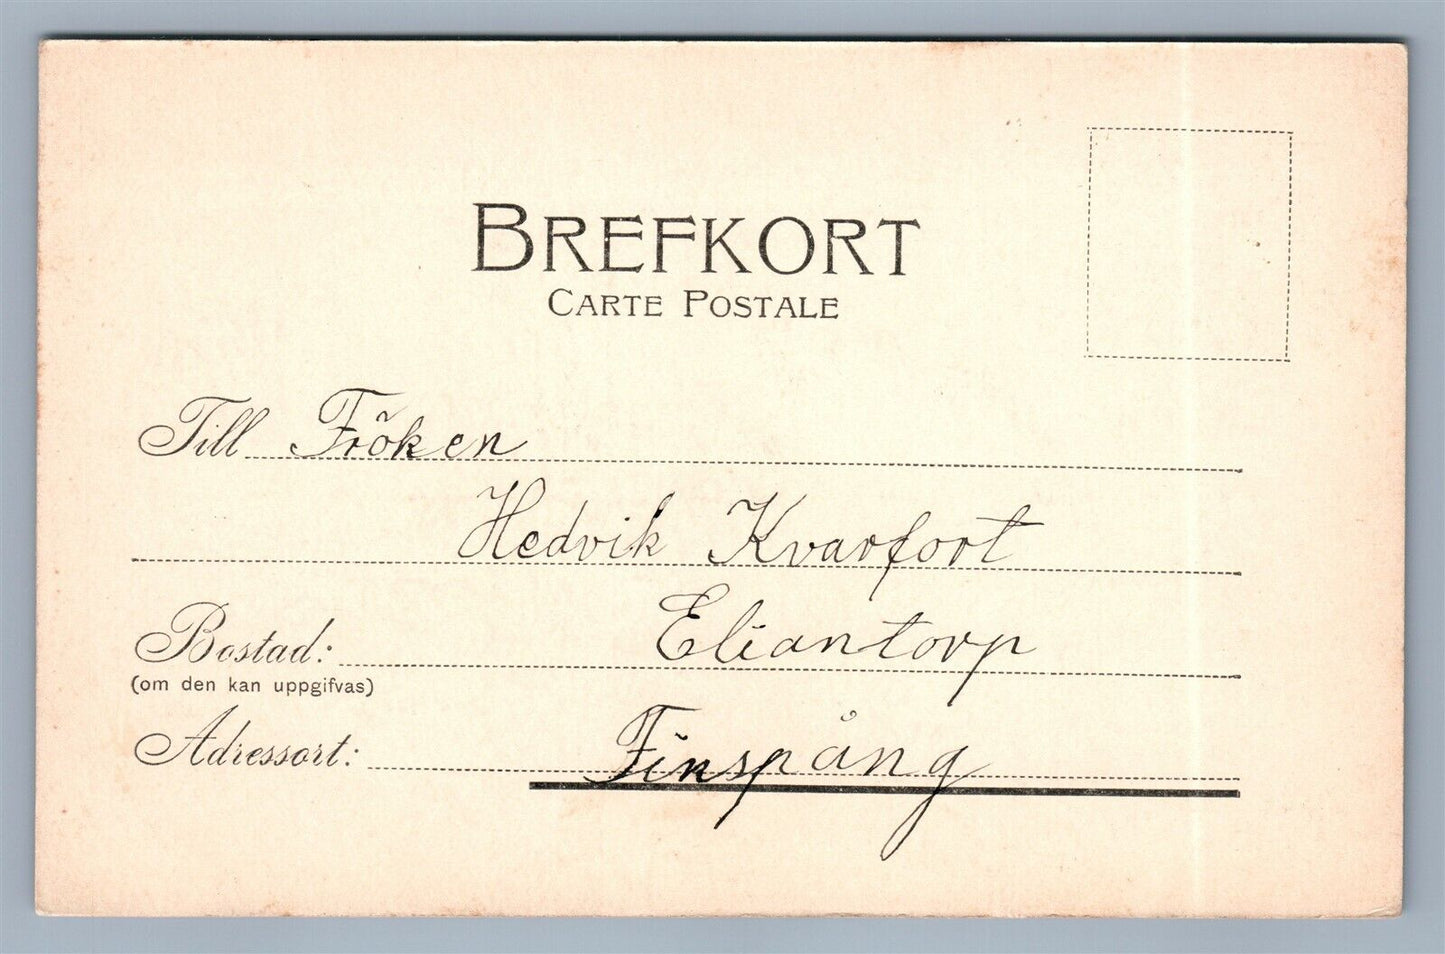 BREFKORT
CARTE POSTALE
Till Fröken
Hedvik Kvarfort
Bostad: Eliantorp
(om den kan uppgifvas)
Adressort: Finspång